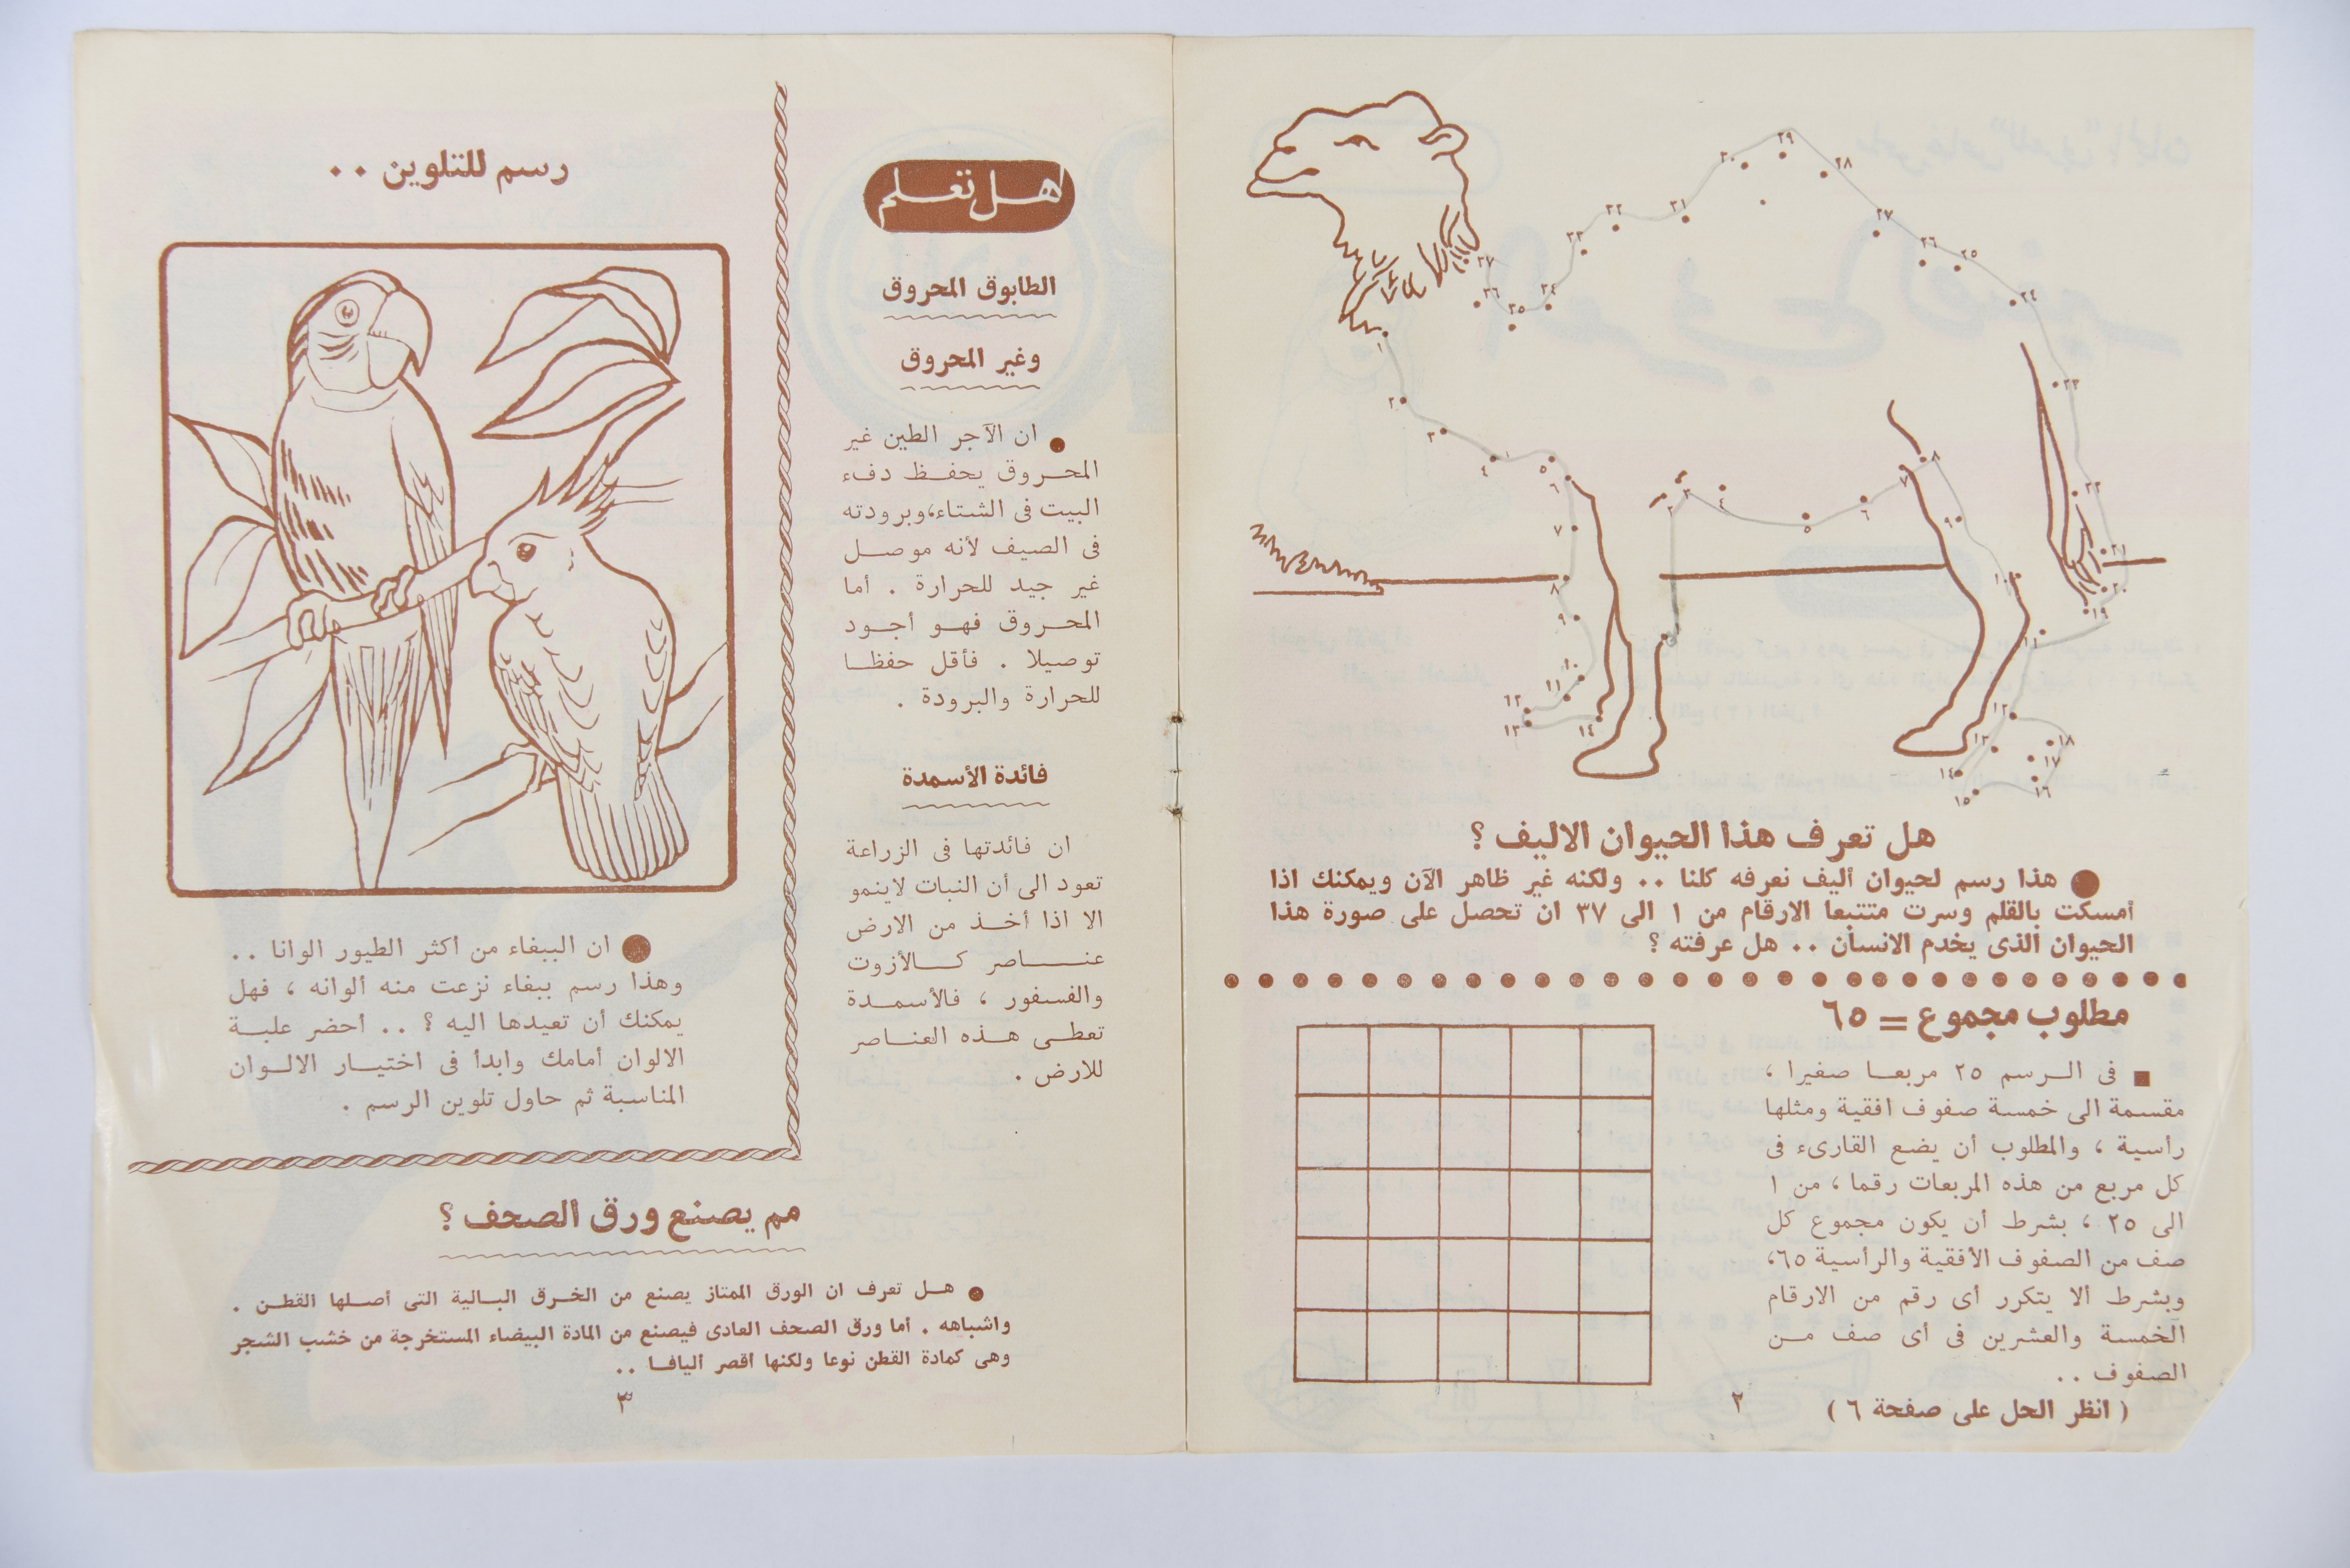 هل تعرف هذا الحيوان الاليف ؟
● هذا رسم لحيوان أليف نعرفه كلنا .. ولكنه غير ظاهر الآن ويمكنك اذا
أمسكت بالقلم وسرت متتبعا الارقام من ١ الى ٣٧ ان تحصل على صورة هذا
الحيوان الذى يخدم الانسان .. هل عرفته ؟
مطلوب مجموع = ٦٥
■ فى الرسم ٢٥ مربعا صغيرا ،
مقسمة الى خمسة صفوف افقية ومثلها
رأسية ، والمطلوب أن يضع القارىء فى
كل مربع من هذه المربعات رقما ، من ١
الى ٢٥ ، بشرط أن يكون مجموع كل
صف من الصفوف الأفقية والرأسية ٦٥،
وبشرط ألا يتكرر أى رقم من الارقام
الخمسة والعشرين فى أى صف من
الصفوف ..
( انظر الحل على صفحة ٦ )
٢
هل تعلم
الطابوق المحروق
وغير المحروق
● ان الآجر الطين غير
المحروق يحفظ دفء
البيت فى الشتاء،وبرودته
فى الصيف لأنه موصل
غير جيد للحرارة . أما
المحروق فهو أجود
توصيلا . فأقل حفظا
للحرارة والبرودة .
فائدة الأسمدة
ان فائدتها فى الزراعة
تعود الى أن النبات لاينمو
الا اذا أخذ من الارض
عناصر كالأزوت
والفسفور ، فالأسمدة
تعطى هذه العناصر
للارض .
رسم للتلوين ..
● ان الببغاء من أكثر الطيور الوانا ..
وهذا رسم ببغاء نزعت منه ألوانه ، فهل
يمكنك أن تعيدها اليه ؟ .. أحضر علبة
الالوان أمامك وابدأ فى اختيار الالوان
المناسبة ثم حاول تلوين الرسم .
مم يصنع ورق الصحف ؟
● هل تعرف ان الورق الممتاز يصنع من الخرق البالية التى أصلها القطن .
واشباهه . أما ورق الصحف العادى فيصنع من المادة البيضاء المستخرجة من خشب الشجر
وهى كمادة القطن نوعا ولكنها أقصر أليافا ..
٣